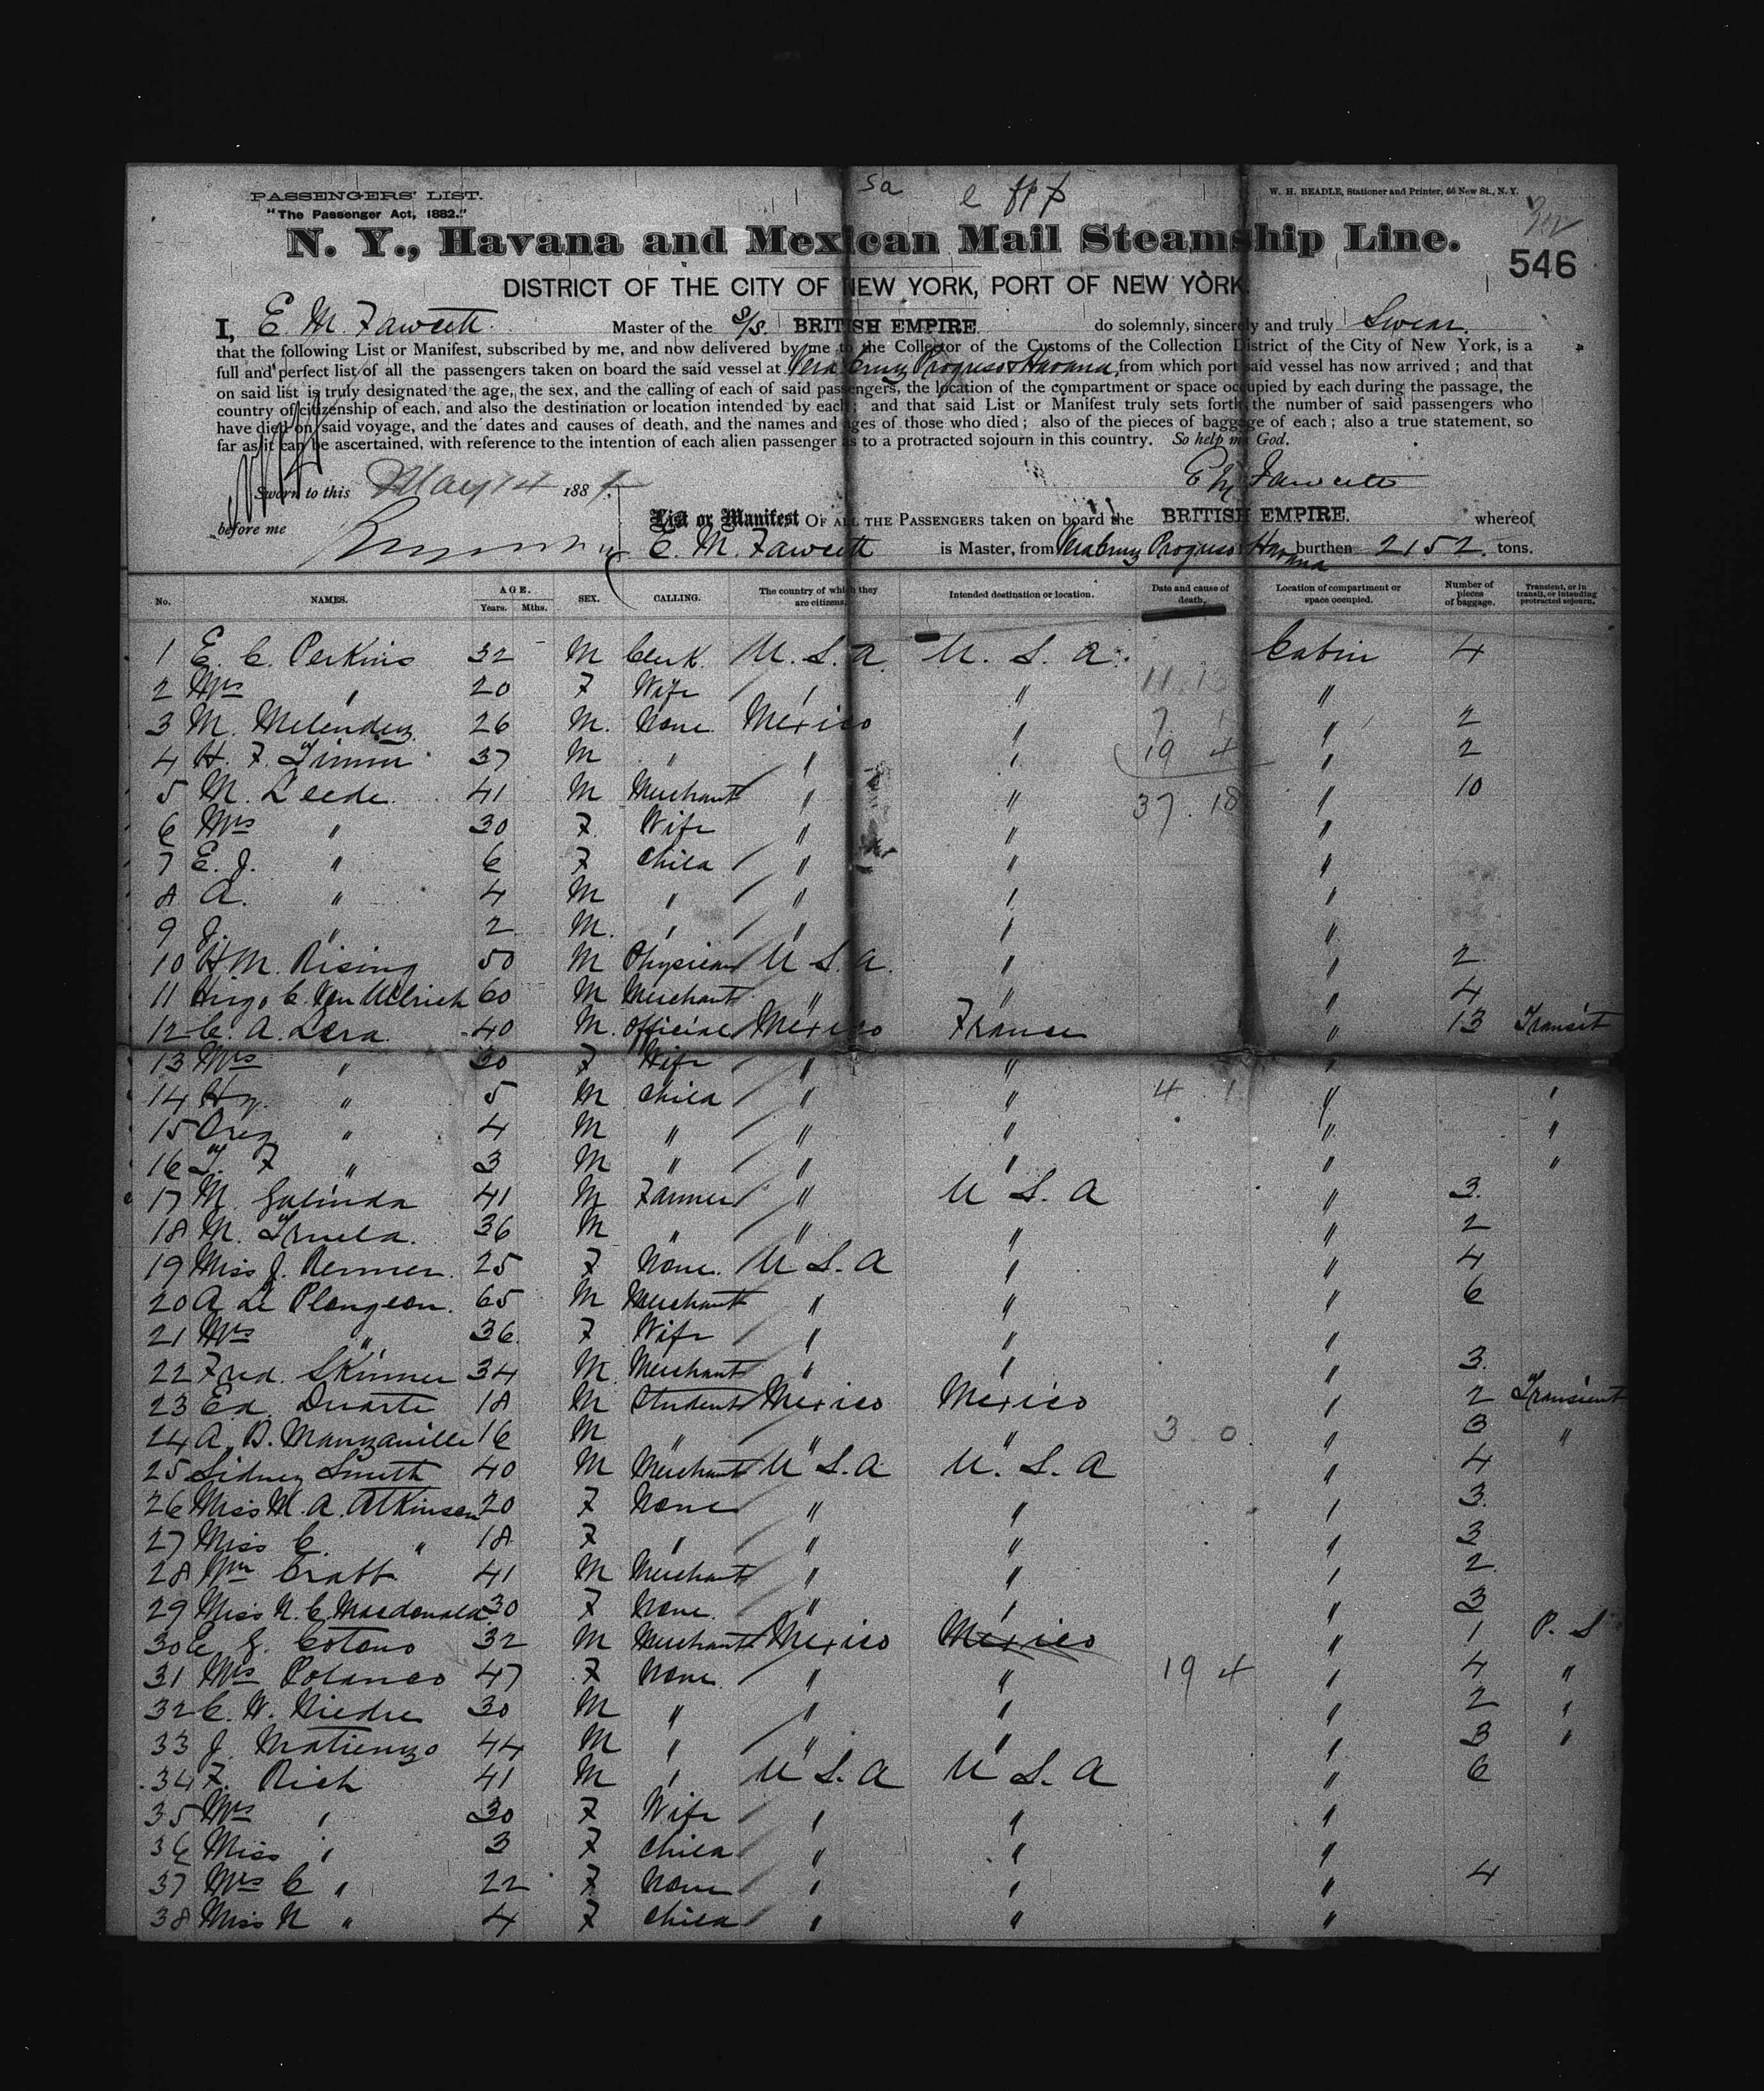 PASSENGERS' LIST.
"The Passenger Act, 1882."
W. H. BEADLE, Stationer and Printer, 66 New St., N. Y.
N. Y., Havana and Mexican Mail Steamship Line.
546
DISTRICT OF THE CITY OF NEW YORK, PORT OF NEW YORK.
I, E. M. Fawcett. Master of the S/S. BRITISH EMPIRE. do solemnly, sincerely and truly Swear.
that the following List or Manifest, subscribed by me, and now delivered by me to the Collector of the Customs of the Collection District of the City of New York, is a
full and perfect list of all the passengers taken on board the said vessel at Vera Cruz Progreso & Havana, from which port said vessel has now arrived ; and that
on said list is truly designated the age, the sex, and the calling of each of said passengers, the location of the compartment or space occupied by each during the passage, the
country of citizenship of each, and also the destination or location intended by each ; and that said List or Manifest truly sets forth the number of said passengers who
have died on said voyage, and the dates and causes of death, and the names and ages of those who died ; also of the pieces of baggage of each ; also a true statement, so
far as it can be ascertained, with reference to the intention of each alien passenger as to a protracted sojourn in this country. So help me God.
E M Fawcett
Sworn to this May 14 188
before me
List or Manifest OF ALL THE PASSENGERS taken on board the BRITISH EMPIRE. whereof
E. M. Fawcett is Master, from Vera Cruz Progreso Havana burthen 2152. tons.
No. NAMES. AGE. Years. Mths. SEX. CALLING. The country of which they are citizens. Intended destination or location. Date and cause of death. Location of compartment or space occupied. Number of pieces of baggage. Transient, or in transit, or intending protracted sojourn.
1 E. C. Perkins 32 M Clerk. U. S. A U. S. A. Cabin 4
2 Mrs " 20 F Wife " " "
3 M. Melendez 26 M. None Mexico " " 2
4 H. F. Timm 37 M " " " " 2
5 M. Leede. 41 M Merchant " " " 10
6 Mrs " 30 F. Wife " " "
7 E. J. " 6 F Child " " "
8 A. " 4 M " " " "
9 J. " 2 M. " " " "
10 H M. Rising 50 M Physician U S. A. " " 2
11 Hugo C. Von Ullrich 60 M Merchant " " " 4
12 C. A. Lera. 40 M. Official Mexico France " 13 Transit
13 Mrs " 30 F Wife " " "
14 Hy. " 5 M Child " " " "
15 " 4 M " " " " "
16 T. F " 3 M " " " " "
17 M. Galinda 41 M Farmer " U S. A " 3.
18 M. Truela. 36 M " " " " 2
19 Miss J. Renner. 25 F None. U S. A " " 4
20 A Le Plongeon. 65 M Merchant " " " 6
21 Mrs " 36. F Wife " " "
22 Fred. Skinner 34 M Merchant " " " 3.
23 Ed. Duarte 18 M Student Mexico Mexico " 2 Transient
24 A. D. Manzanilla 16 M " " " " 3 "
25 Sidney Smith 40 M Merchant U S. A U. S. A " 4
26 Miss M. A. Atkinson 20 F None " " " 3.
27 Miss C. " 18 F " " " " 3
28 Wm Crabb 41 M Merchant " " " 2
29 Miss N. C. Macdonald 30 F None. " " " 3
30 E. G. Cotono 32 M Merchant Mexico Mexico " 1 P. S
31 Mrs Polanco 47 F None. " " 19 4 " 4 "
32 C. W. Niedre 30 M " " " " 2 "
33 J. Matienzo 44 M " " " " 3 "
34 F. Rich 41 M " U S. A U S. A " 6
35 Mrs " 30 F Wife " " "
36 Miss " 3 F Child " " "
37 Mrs C " 22 F None " " " 4
38 Miss N " 4 F Child " " "